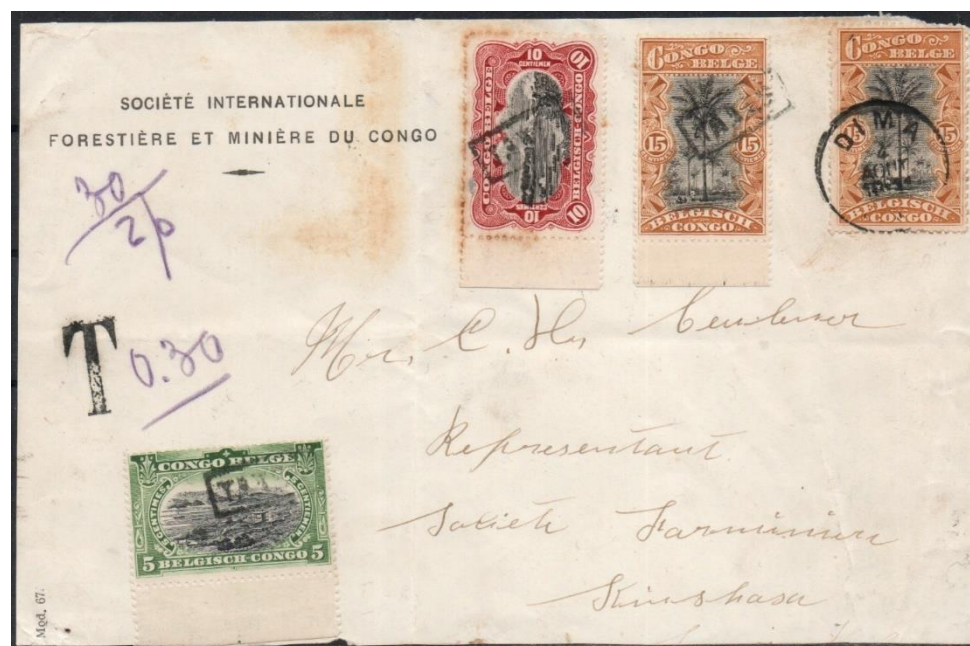 SOCIÉTÉ INTERNATIONALE
FORESTIÈRE ET MINIÈRE DU CONGO
30/26
T 0.30
10 CENTIEMEN 10
CONGO BELGE
BELGISCH CONGO
10 10
CONGO BELGE
15 15
BELGISCH CONGO
TAXES
CONGO BELGE
15
BELGISCH CONGO
DIMA
4
AOUT
Mrs. C.
Representant
Société Forminière
Kinshasa
CONGO BELGE
5 CENTIMES
5 CENTIEMEN
5 BELGISCH-CONGO 5
Mod. 67.